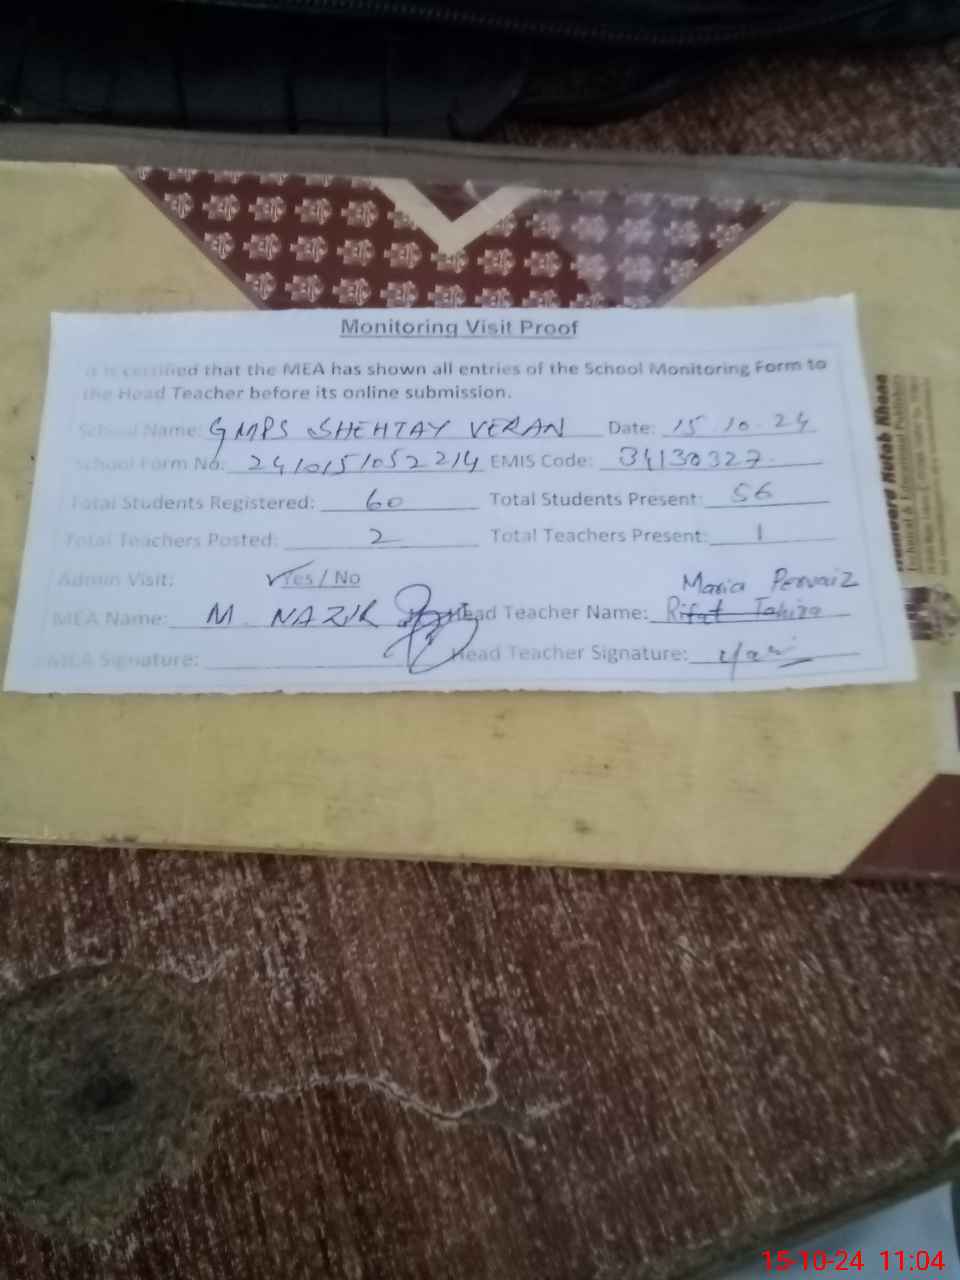 Monitoring Visit Proof
It is certified that the MEA has shown all entries of the School Monitoring Form to
the Head Teacher before its online submission.
School Name: GMPS SHEHTAY VERAN Date: 15.10.24
School Form No: 241015105 2214 EMIS Code: 34130327
Total Students Registered: 60 Total Students Present: 56
Total Teachers Posted: 2 Total Teachers Present: 1
Admin Visit: Yes / No
Maria Pervaiz
MEA Name: M. NAZIR Head Teacher Name: Rifat Tahira
MEA Signature: Head Teacher Signature:
Kutab Khana
15-10-24 11:04